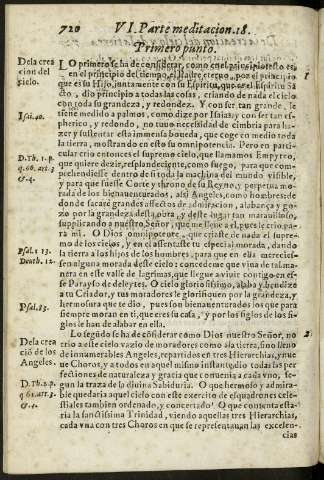 720 VI. Parte meditacion. 18.
Primero punto.
Dela crea
cion del
cielo.
LO primero se ha de considerar, como en el principio, esto es,
en el principio del tiempo, el Padre eterno, por el principio
que es su Hijo, juntamente con su Espiritu, que es el Espiritu Sã
cto, dio principio a todas las cosas, criando de nada el cielo
con toda su grandeza, y redondez. Y con ser tan grande, le
Isai. 40.
tiene medido a palmos, como dize por Isaias, y con ser tan es-
pherico, y redondo, no tuuo necessidad de cimbria para ha-
zer y sustentar esta immensa boueda, que coge en medio toda
la tierra, mostrando en esto su omnipotencia. Pero en parti-
D. Th. 1. p.
q. 66. art. 3
& 4.
cular crio entonces el supremo cielo, que llamamos Empyreo,
que quiere dezir, resplandeciente, como fuego, para que com-
prehendiesse dentro de si toda la machina del mundo visible,
y para que fuesse Corte y throno de su Reyno, y perpetua mo-
rada de los bienauenturados, assi Angeles, como hombres: de
donde sacarè grandes affectos de admiracion, alabança y go-
zo por la grandeza desta obra, y deste lugar tan marauilloso,
supplicando a nuestro Señor, que me lleue a el, pues le crio, pa-
ra mi. O Dios omnipotente, que criaste de nada el supre-
Psal. 113.
Deuth. 12.
mo de los cielos, y en el assentaste tu especial morada, dando
la tierra a los hijos de los hombres, para que en ella mereciessen
alguna morada deste cielo: concedeme que viua de tal ma-
nera en este valle de lagrimas, que llegue a viuir contigo en es-
se Parayso de deleytes. O cielo gloriosissimo, alaba y bendize
a tu Criador, y tus moradores le glorifiquen por la grandeza, y
Psal. 83.
hermosura que te dio, pues son bienauenturados los que para
siempre moran en ti, que eres su casa, y por los siglos de los si-
glos le han de alabar en ella.
Dela crea
ció de los
Angeles.
Lo segũdo se ha de cõsiderar como Dios nuestro Señor, no
crio a este cielo vazio de moradores como a la tierra, sino lleno
de innumerables Angeles, repartidos en tres Hierarchias, y nue
ue Choros, y a todos en aquel mismo instante, dio todas las per
fecciones de naturaleza y gracia que conuenia a cada vno, se-
D. Th. 1. p.
q 61. art. 3.
& 4.
gun la traza de la diuina Sabiduria. O que hermoso y admira-
ble quedaria aquel cielo con este exercito de esquadrones cele-
stiales tambien ordenado, y concertado! O que contenta esta-
ria la sanctissima Trinidad, viendo aquellas tres Hierarchias,
cada vna con tres Choros en que se representauan las excelen-
cias
1
2